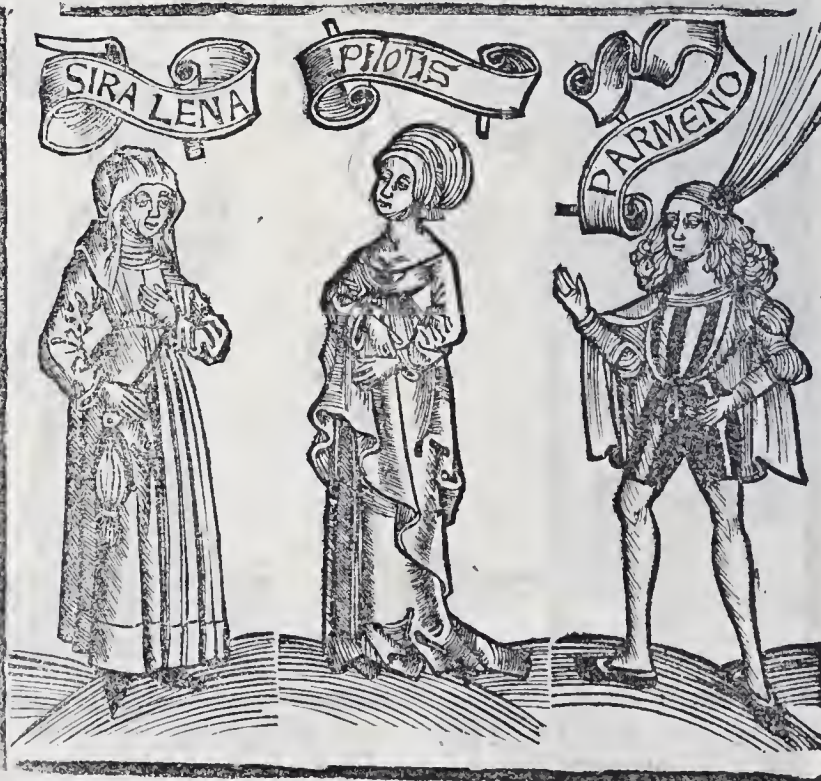 SIRA LENA
PHOTIS
PARMENO